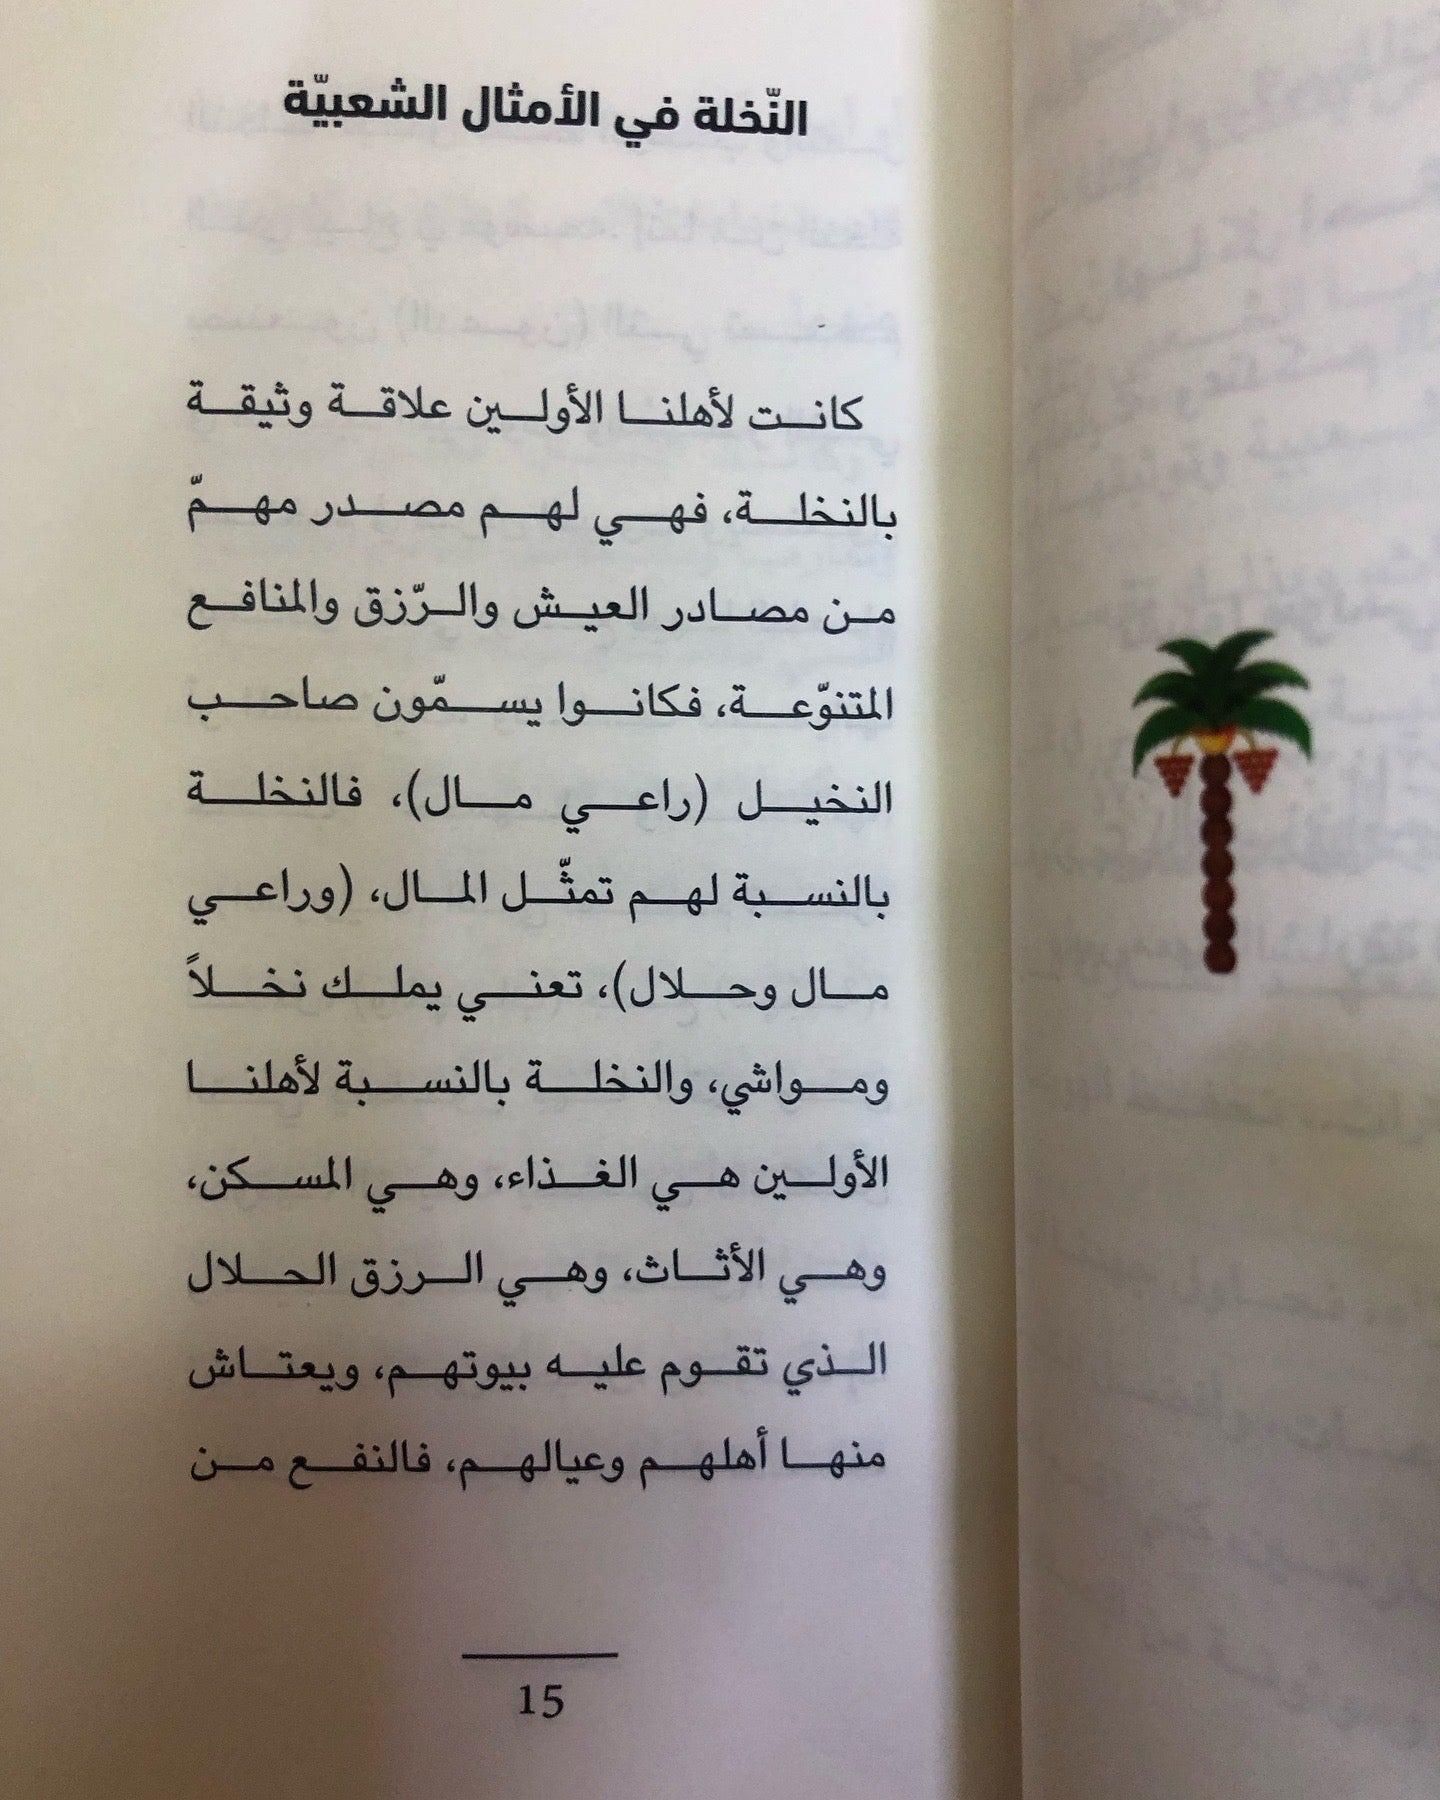 النّخلة في الأمثال الشعبيّة
كانت لأهلنا الأولين علاقة وثيقة
بالنخلة، فهي لهم مصدر مهمّ
من مصادر العيش والرّزق والمنافع
المتنوّعة، فكانوا يسمّون صاحب
النخيل (راعي مال)، فالنخلة
بالنسبة لهم تمثّل المال، (وراعي
مال وحلال)، تعني يملك نخلاً
ومواشي، والنخلة بالنسبة لأهلنا
الأولين هي الغذاء، وهي المسكن،
وهي الأثاث، وهي الرزق الحلال
الذي تقوم عليه بيوتهم، ويعتاش
منها أهلهم وعيالهم، فالنفع من
15